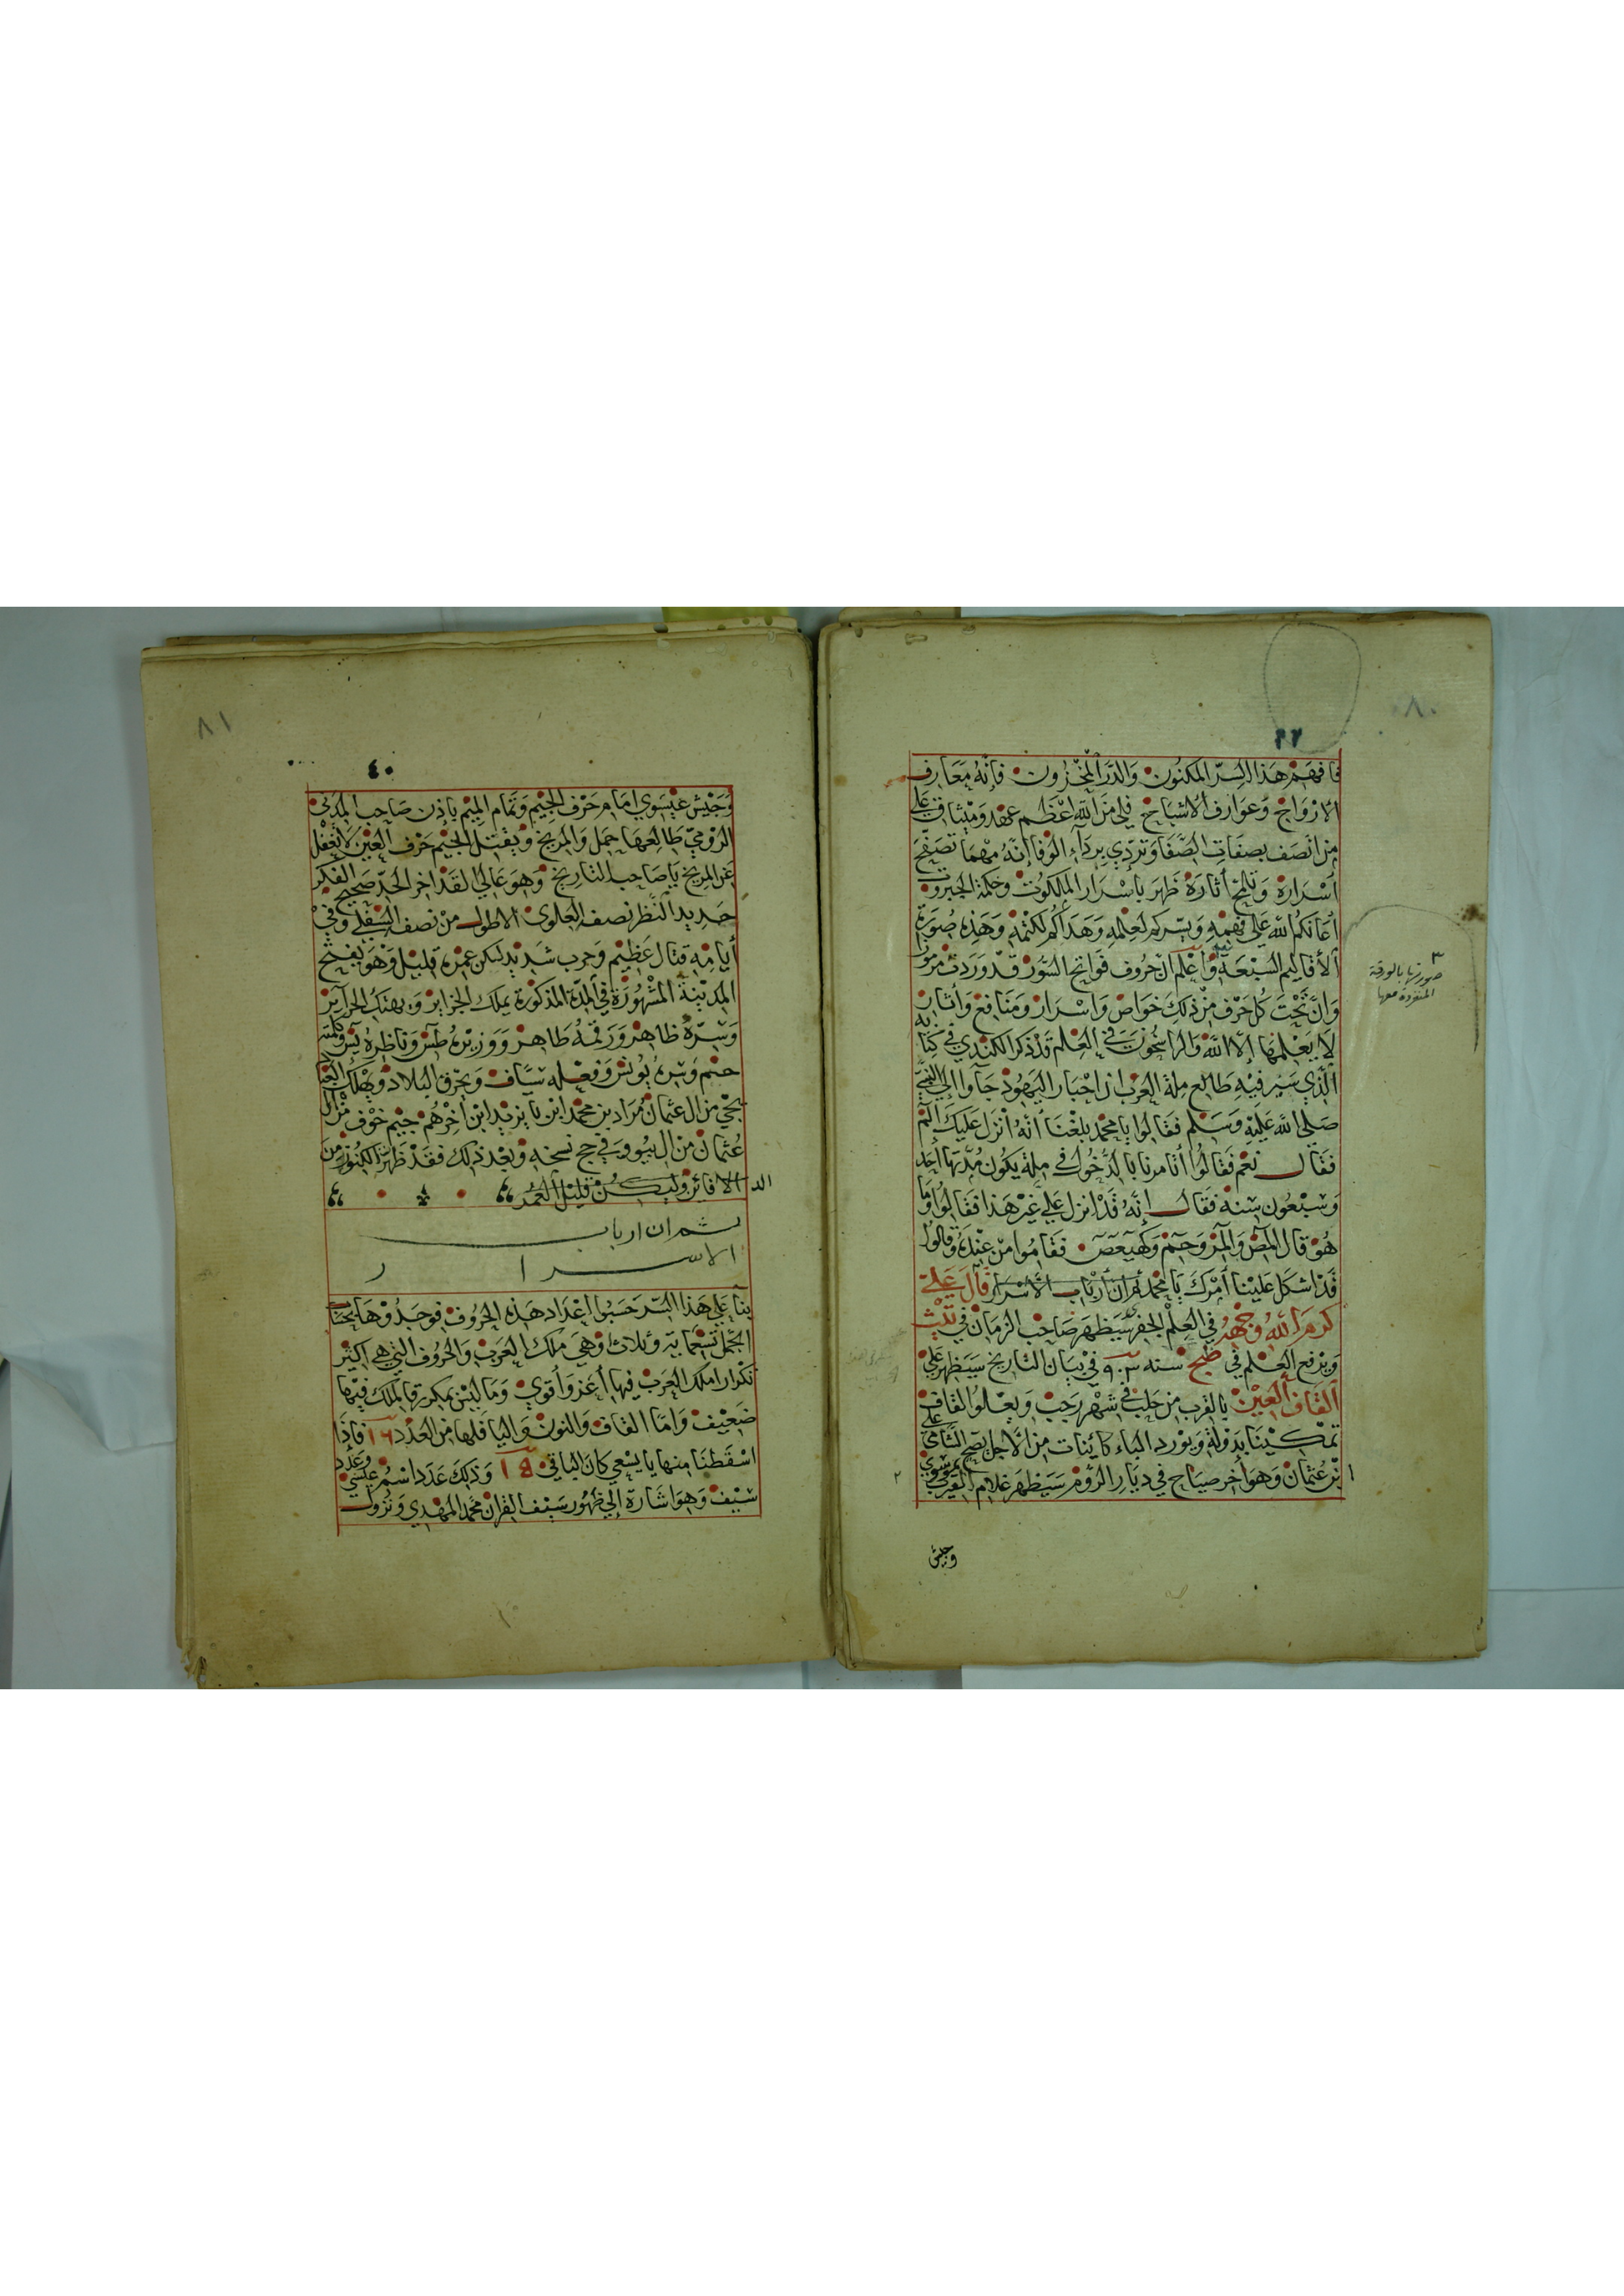 ٨٠
فافهم هذا السر المكنون والدر المخزون فإنه معارف
الارواح وعوارف الاشباح فلي من الله اعظم عهد وميثاق على
من اتصف بصفات الصفا وتردي برداء الوفا انه مهما تصفح
أسراره وتلمح أثاره ظهر باسرار الملكوت وحكمة الجبروت
أعانكم الله على فهمه ويسركم لعلمه وهداكم لكتمه وهذه صورة
الأقاليم السبعة واعلم ان حروف فواتح السور قد وردت مرموز
وان تحت كل حرف من ذلك خواص واسرار ومنافع وأثار
لا يعلمها إلا الله والراسخون في العلم قد ذكر الكندي في كتابه
الذي سير فيه طالع ملة العرب ان احبار اليهود جاوا إلى النبي
صلى الله عليه وسلم فقالوا يا محمد بلغنا أنه انزل عليك الم
فقال نعم فقالوا أتامرنا بالدخول في ملة يكون مدتها احد
وسبعون سنه فقال إنه قد انزل علي غير هذا فقالوا وما
هو قال المص والمر وحم وكهيعص فقاموا من عنده وقالوا
قد اشكل علينا أمرك يا محمد ثم ان أرباب الاسرار قال علي
كرم الله وجهه في العلم الجفر سيظهر صاحب الزمان في
ويرفع العلم في سنه ٩٠٣ في بيان التاريخ سيظهر على
القاف العين بالقرب من حلب في شهر رجب ويعلو القاف
تمكينا بدولة ويورد الباء كائينات من الاجل يصح الشامي على
بر عثمان وهو أخر صياح في ديار الروم سيظهر غلام العرب موسوي
وجيش
٣
صورتها بالورقة
المنفردة معها
٨١
٤٠
وجيش عيسوي امام حرف الجيم وتمام الميم بإذن صاحب المدني
الرومي طالعها حمل والمريخ ويقتل الجيم حرف العين لا تغفل
عن المريخ يا صاحب التاريخ وهو عالي القد اخر الحد صحيح الفكر
حديد النظر نصفه العلوي الاطول من نصفه السفلي وفي
أيامه قتال عظيم وحرب شديد لكن عمره قليل وهو يفتح
المدينة المشهورة في المدة المذكورة يملك الجزاير ويهتك الحراير
وسره ظاهر ورقمه طاهر ووزيره طس وناظره يس وكلمته
حم وسره يونس وفعله سياف ويخرق البلاد ويهلك العباد
يحي من ال عثمان مراد بن محمد ابن بايزيد ابن أخرهم جيم خوف من ال
عثمان من وفي حج نسخه وبعد ذلك فقد ظهرت الكنوز من
الدفائن وليكن قليل العمر
ثم ان ارباب
الاسرار
بنا على هذا السر حسبوا اعداد هذه الحروف فوجدوها بحساب
الجمل تسعمايه وثلاث وهي ملك العرب والحروف التي هي اكثر
تكرارا ملك العرب فيها أعز وأقوي وما ليس بمكرر قالملك فيها
ضعيف واما القاف والنون واليا فلها من العدد ١٦٠ فإذا
اسقطنا منها كان الباقي ١٥٠ وذلك عدد اسم عيسي وعدد
سيف وهو اشارة إلى ظهور سيف القران محمد المهدي ونزول